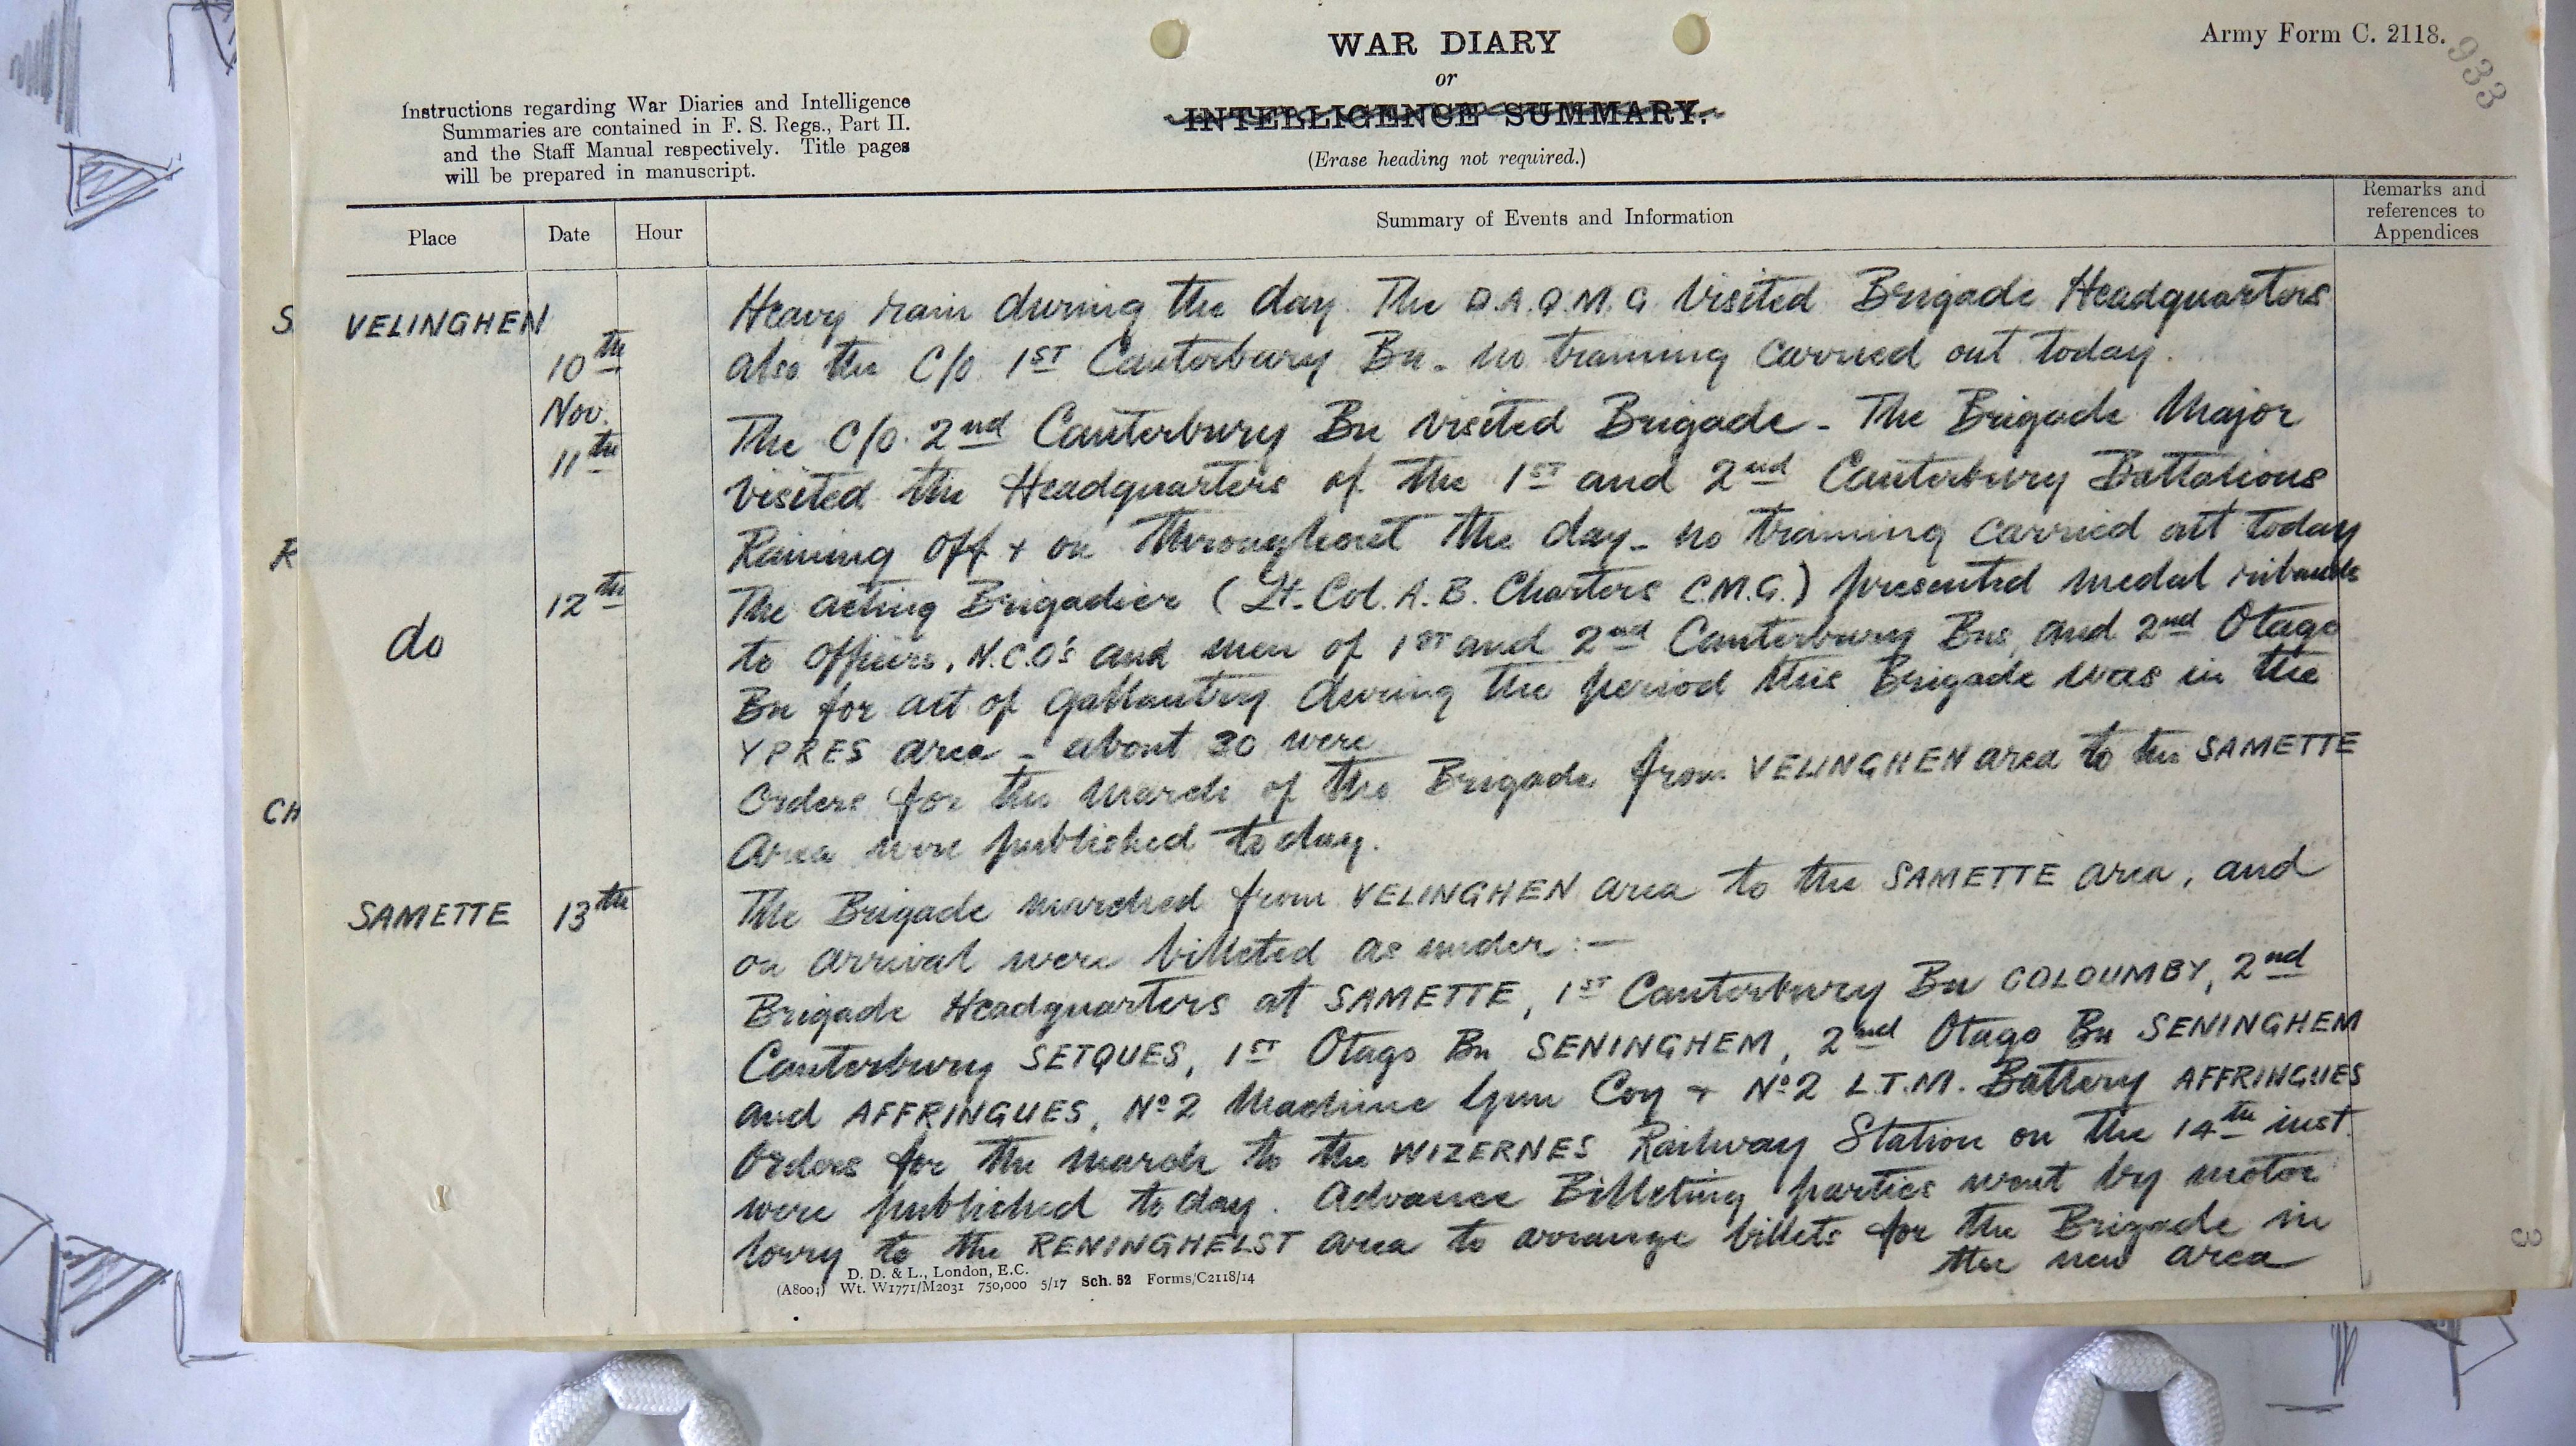 WAR DIARY
or
INTELLIGENCE SUMMARY.
(Erase heading not required.)
Army Form C. 2118.
933
Instructions regarding War Diaries and Intelligence
Summaries are contained in F. S. Regs., Part II.
and the Staff Manual respectively. Title pages
will be prepared in manuscript.
Place Date Hour Summary of Events and Information Remarks and references to Appendices
S
VELINGHEN
10th
Nov.
Heavy rain during the day. The D.A.Q.M.G visited Brigade Headquarters
also the C/O 1ST Canterbury Bn - no training carried out today.
11th
The C/O. 2nd Canterbury Bn visited Brigade - The Brigade Major
visited the Headquarters of the 1ST and 2nd Canterbury Battalions
Raining off + on throughout the day - no training carried out today
R
do
12th
The acting Brigadier (Lt. Col. A. B. Charters C.M.G.) presented medal ribands
to Officers, N.C.O's and men of 1ST and 2nd Canterbury Bns, and 2nd Otago
Bn for act of gallantry during the period this Brigade was in the
YPRES area - about 30 were
Orders for the march of the Brigade from VELINGHEN area to the SAMETTE
Area were published today.
CH
SAMETTE
13th
The Brigade marched from VELINGHEN area to the SAMETTE area, and
on arrival were billeted as under :-
Brigade Headquarters at SAMETTE, 1ST Canterbury Bn COLOUMBY, 2nd
Canterbury SETQUES, 1ST Otago Bn SENINGHEM, 2nd Otago Bn SENINGHEM
and AFFRINGUES, No 2 Machine Gun Coy + No 2 L.T.M. Battery AFFRINGUES
Orders for the march to the WIZERNES Railway Station on the 14th inst.
were published today. Advance Billeting parties went by motor
lorry to the RENINGHELST area to arrange billets for the Brigade in
the new area
D. D. & L., London, E.C.
(A8004) Wt. W1771/M2031 750,000 5/17 Sch. 52 Forms/C2118/14